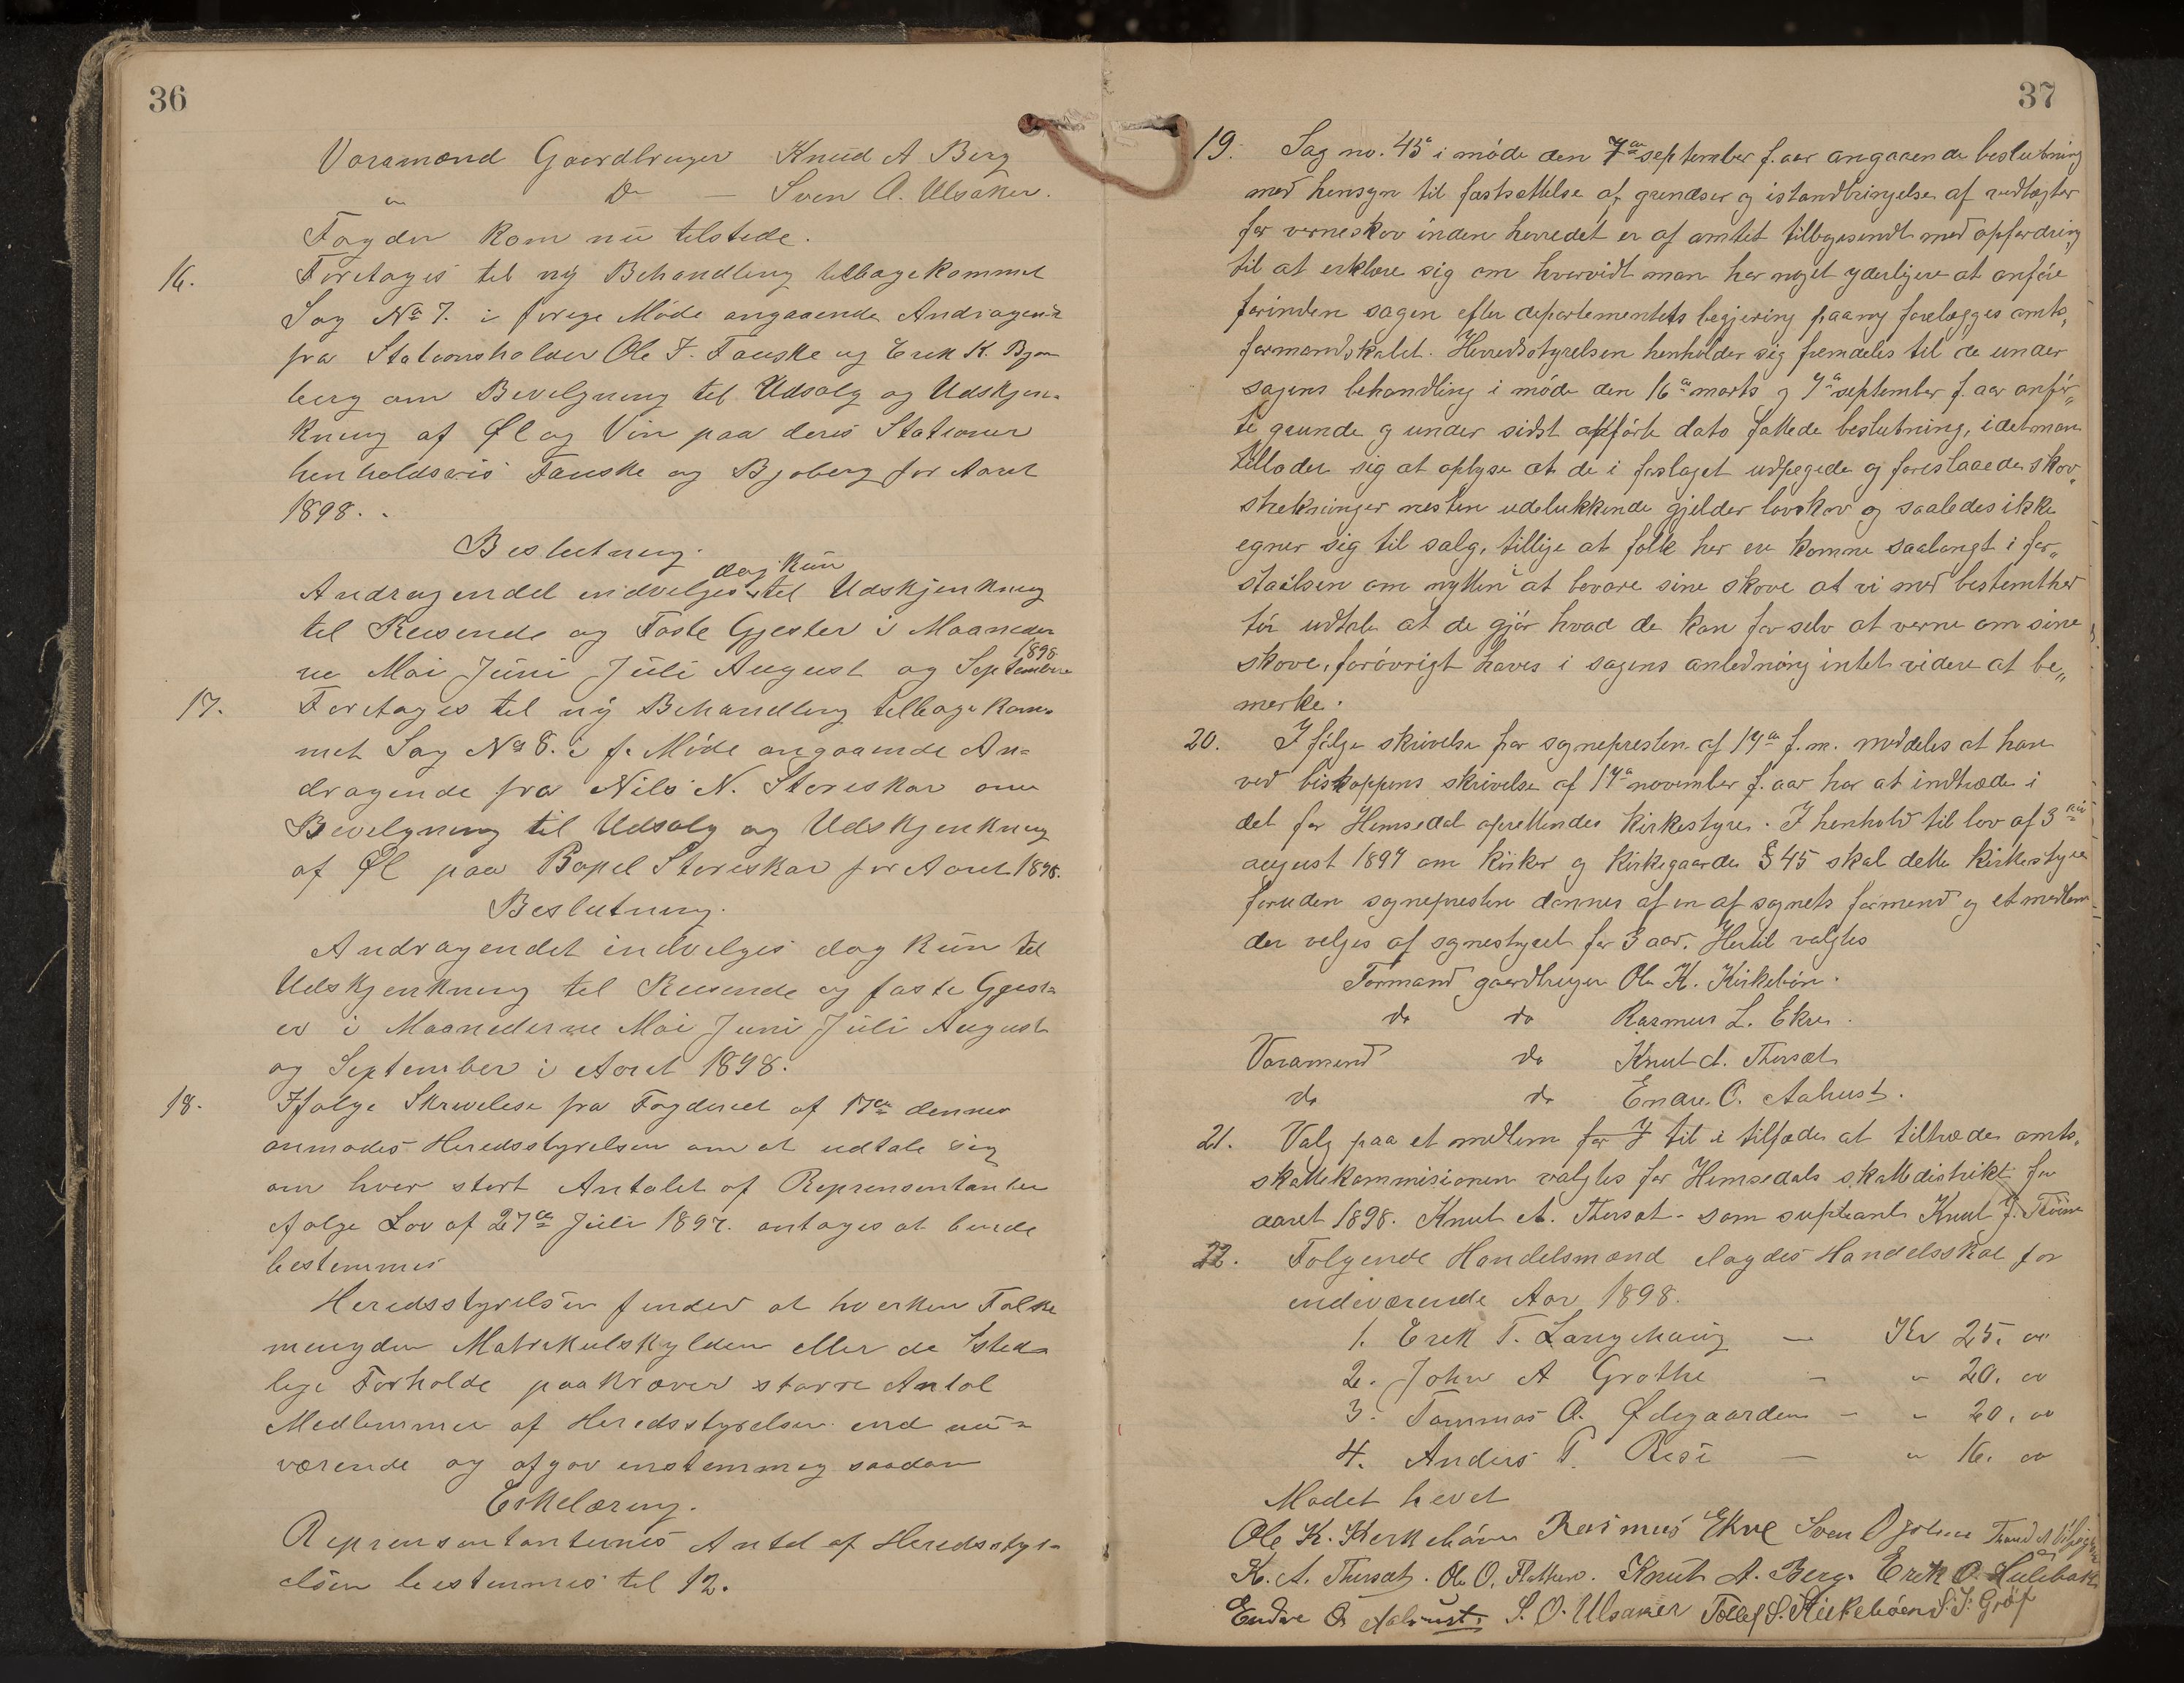 36
Varamænd Gaardbruger Knud A Berg
" Do — Sven O. Ulsaker.
Fogden kom nu tilstede.
16. Foretoges til ny Behandling tilbagekommet
Sag No 7. i forrige Møde angaaende Andragende
fra Stationsholder Ole T. Fauske og Erik K. Bjø-
berg om Bevilgning til Udsalg og Udskjæn-
kning af Øl og Vin paa deres Stationer
henholdsvis Fauske og Bjøberg for Aaret
1898.
Beslutning.
dog kun
Andragendet indvilges til Udskjenkning
til Reisende og Faste Gjester i Maaneder
1898
ne Mai Juni Juli August og September
17. Foretoges til ny Behandling tilbagekom-
met Sag No 8. i f. Møde angaaende An-
dragende fra Nils N. Storeskar om
Bevilgning til Udsalg og Udskjenkning
af Øl paa Bopel Storeskar for Aaret 1898.
Beslutning.
Andragendet indvilges dog kun til
Udskjenkning til Reisende og faste Gjest-
er i Maanederne Mai Juni Juli August
og September i Aaret 1898.
18. Ifølge Skrivelse fra Fogderiet af 17de dennes
anmodes Heredsstyrelsen om at udtale sig
om hvor stort Antalet af Reprensentanter
ifølge Lov af 27de Juli 1897. antages at burde
bestemmes
Heredsstyrelsen finder at hverken Folke
mengden Matrikulskylden eller de sted-
lige Forholde paakræver større Antal
Medlemmer af Heredsstyrelsen end nu-
værende og afgav enstemmig saadan
Erkelæring.
Reprensentanternes Antal af Heredsstyr-
elsen bestemmes til 12.
37
19. Sag no. 45 i møde den 7de september f. aar angaaende beslutning
med hensyn til fastsættelse af grendser og istandbringelse af vedtægter
for verneskov inden herredet er af amtet tilbagesendt med opfordring
til at erklære sig om hvorvidt man har noget yderligere at anføre
forinden sagen efter departementets begjering paany forelægges amts„
formandskabet. Herredsstyrelsen henholder sig fremdeles til de under
sagens behandling i møde den 16de marts og 7de september f. aar anfør„
te grunde og under sidst anførte dato fattede beslutning, idet man
tillader sig at oplyse at de i forslaget udpegede og foreslaaede skov„
strekninger nesten udelukkende gjelder lovskov og saaledes ikke
egner sig til salg, tillige at folk her er komne saalangt i for„
staaelsen om nytten i at bevare sine skove at vi med bestemthed
tør udtale at de gjør hvad de kan for selv at verne om sine
skove, forøvrigt haves i sagens anledning intet videre at be„
merke.
20. Ifølge skrivelse fra sognepresten af 17de f. m. meddeles at han
ved biskoppens skrivelse af 17de november f. aar har at indtræde i
det for Hemsedal oprettendes kirkestyre. I henhold til lov af 3die
august 1897 om kirker og kirkegaarde § 45 skal dette kirkestyre
foruden sognepresten dannes af en af sognets formend og et medlem
der velges af sognestyret for 3 aar. Hertil valgtes
Formand gaardbruger Ole K. Kirkebøn.
do do Rasmus L. Ekre.
Varamend do Knut A. Thersat
do do Endre O. Aalrust.
21. Valg paa et medlem for J til i tilfælde at tiltræde amts„
skattekommisionen valgtes for Hemsedals skattedistrikt for
aaret 1898. Knut A. Thersat - som supleant Knut J.
22. Følgende Handelsmænd ilagdes Handelsskat for
indeværende Aar 1898.
1. Erik T. Langehaug — Kr 25. 00
2. John A Grøthe — " 20. 00
3. Tommas O. Ødegaarden — " 20. 00
4. Anders T. Resi — " 16. 00
Mødet hevet
Ole K. Kerkebøen Rasmus Ekre Sven
K. A. Thersat. Ole O. Flathen. Knut A. Berg. Erik O. Hulebak
Endre O Aalrust. S. O. Ulsaker Tollef O. Kirkebøen S. S. Grøf